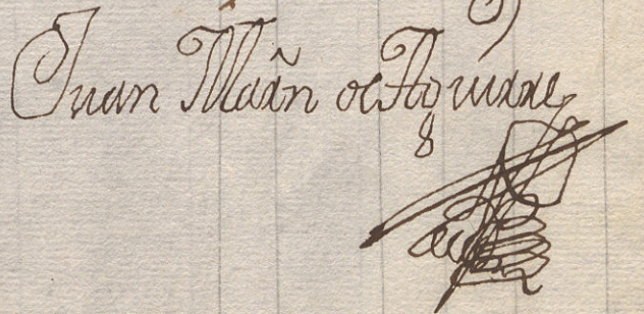 Juan Marñ de Aguirre